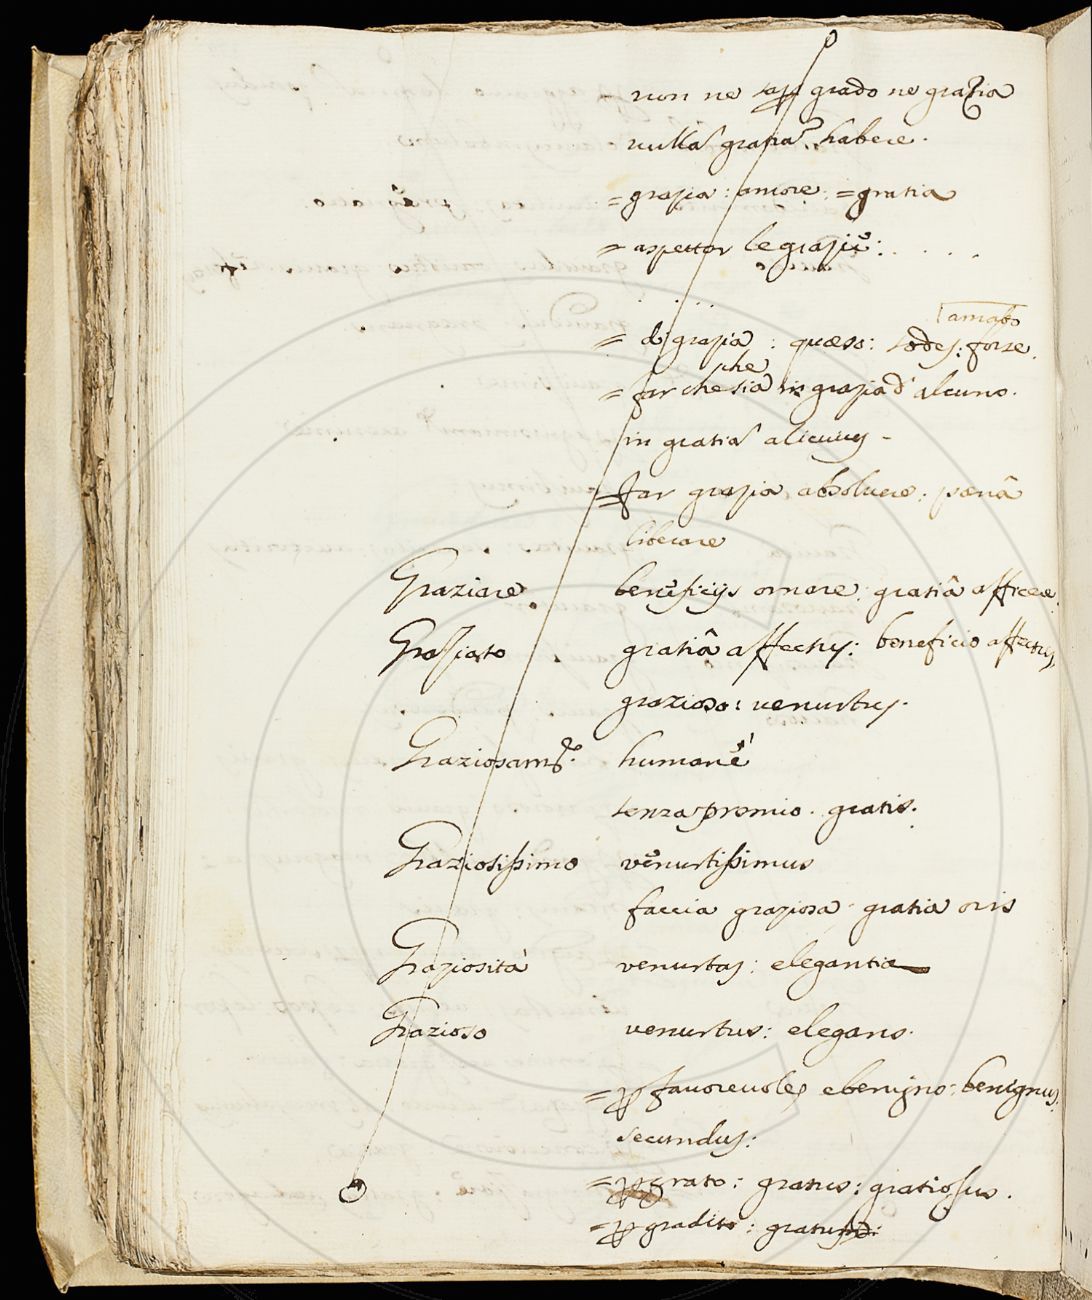 non ne sapp grado ne grazia
nulla' gratia' habere.
= grazia: amore: = gratia
= aspettar le grazie: . . . .
amabo
= di grazia: quæso: sodes: forse.
che
= far che sia in grazia d'alcuno.
in gratia' alicuius -
= far grazia absoluere: pœnâ
liberare
Graziare beneficijs ornare: gratiâ afficere.
Graziato gratiâ affectus: beneficio affectus,
grazioso: uenustus.
Graziosamte. humanè
senza premio. gratis.
Graziosissimo uenustissimus
faccia graziosa: gratia oris
Graziosità uenustas: elegantia
Grazioso uenustus: elegans.
= p fauoreuole, e benigno: benignus,
secundus:
= p grato: gratus: gratiosus.
= p gradito: gratus